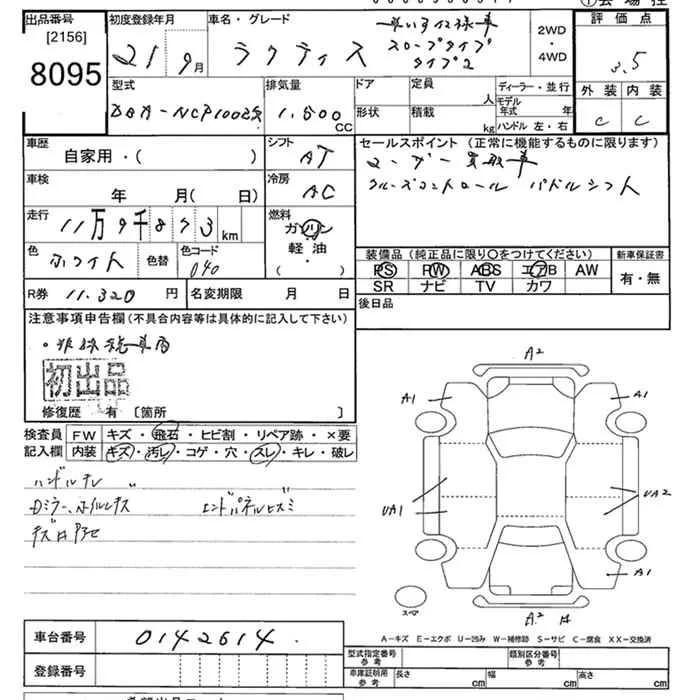 出品番号
[2156]
8095
初度登録年月
21 9月
車名・グレード
ラクティス
車いす仕様車
スロープタイプ
タイプ2
2WD
・
4WD
評価点
3.5
外装 内装
C C
型式
DBA-NCP100改
排気量
1.500
CC
ドア
形状
定員
人
積載
kg
ディーラー・並行
モデル年式 年
ハンドル 左・右
車歴
自家用・( )
シフト
AT
車検
年 月( 日)
冷房
AC
走行
11万9千873km
燃料
ガソリン
・
軽油
・
( )
色
ホワイト
色替
色コード
040
R券 11.320 円
名変期限 月 日
セールスポイント (正常に機能するものに限ります)
ユーザー買取車
クルーズコントロール パドルシフト
装備品(純正品に限り〇をつけてください)
新車保証書
PS PW ABS エアB AW
有・無
SR ナビ TV カワ
後日品
注意事項申告欄(不具合内容等は具体的に記入して下さい)
初出品
修復歴 有 〔箇所 〕
検査員
記入欄
FW キズ・飛石・ヒビ割・リペア跡・×要
内装 キズ・汚レ・コゲ・穴・スレ・キレ・破レ
ハンドルスレ
Dミラー、ホイルキズ エンドパネルヒズミ
A2
A1 A1
UA1 UA2
A1
スペア
A2
A-キズ E-エクボ U-凹み W-補修跡 S-サビ C-腐食 XX-交換済
車台番号
0142614
登録番号
型式指定番号
参考
類別区分番号
参考
車庫証明用
参考
長さ cm
幅 cm
高さ cm